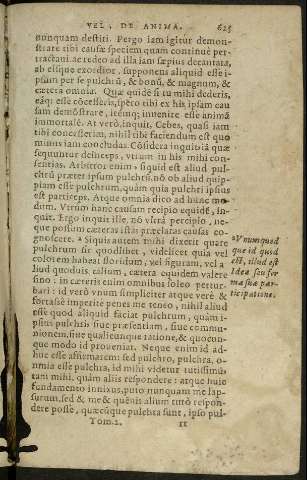 VEL, DE ANIMA. 625
nunquam destiti. Pergo iam igitur demon-
strare tibi causæ speciem quam continuè per-
tractaui. ac redeo ad illa iam sæpius decantata,
ab eisque exordior, supponens aliquid esse i-
psum per se pulchrũ, & bonũ, & magnum, &
cætera omnia. Quæ quidẽ si tu mihi dederis,
eaq; esse cõcesseris, spero tibi ex his ipsam cau
sam demõstrare, itémq; inuenire esse animã
immortalẽ. At verò, inquit, Cebes, quasi iam
tibi concesserim, nihil tibi faciendum est quo
minus iam concludas. Cõsidera inquit iã quæ
sequuntur deinceps, vtrum in his mihi con-
sentias. Arbitror enim, siquid est aliud pul-
chrũ præter ipsum pulchrũ, nõ ob aliud quip-
piam esse pulchrum, quàm quia pulchri ipsius
est particeps. Atque omnia dico ad hunc mo-
dum. Vtrùm hanc causam recipis equidẽ, in-
quit. Ergo inquit ille, nõ vltrà percipio, ne-
que possum cæteras istas præclaras causas co-
gnoscere. a Siquis autem mihi dixerit quare
pulchrum sit quodlibet, videlicet quia vel
colorem habeat floridum, vel figuram, vel a
liud quoduis talium, cætera equidem valere
sino: in cæteris enim omnibus soleo pertur-
bari: id verò vnum simpliciter atque verè &
fortasse ineptè penes me teneo, nihil aliud
esse quod aliquid faciat pulchrum, quàm i-
psius pulchri siue præsentiam, siue commu-
nionem, siue qualicunque ratione, & quocun-
que modo id proueniat. Neque enim id ad-
huc esse affirmarem: sed pulchro, pulchra, o-
mnia esse pulchra, id mihi videtur tutissimũ
tum mihi, quàm aliis respondere: atque huic
fundamento innixus, puto nunquam me lap-
surum, sed & me & quẽuis alium tutò respon-
dere posse, quæcũque pulchra sunt, ipso pul-
Tom. 2. II
a Vnumquod
que id quod
est, aliud est
Idea seu for
mæ suæ par-
ticipatione.